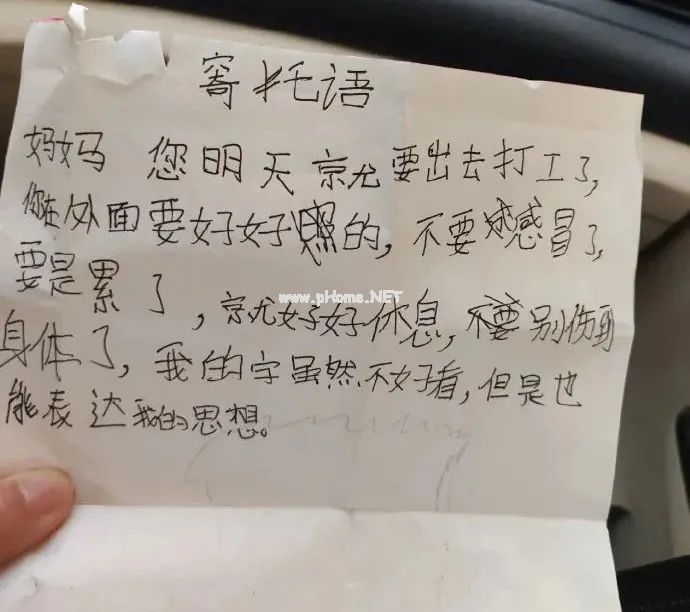 寄托语
妈妈 您明天就要出去打工了,
你在外面要好好的, 不要感冒了,
要是累了, 就好好休息, 不要别伤到
身体了, 我的字虽然不好看, 但是也
能表达我的思想。
www.pHome.NET